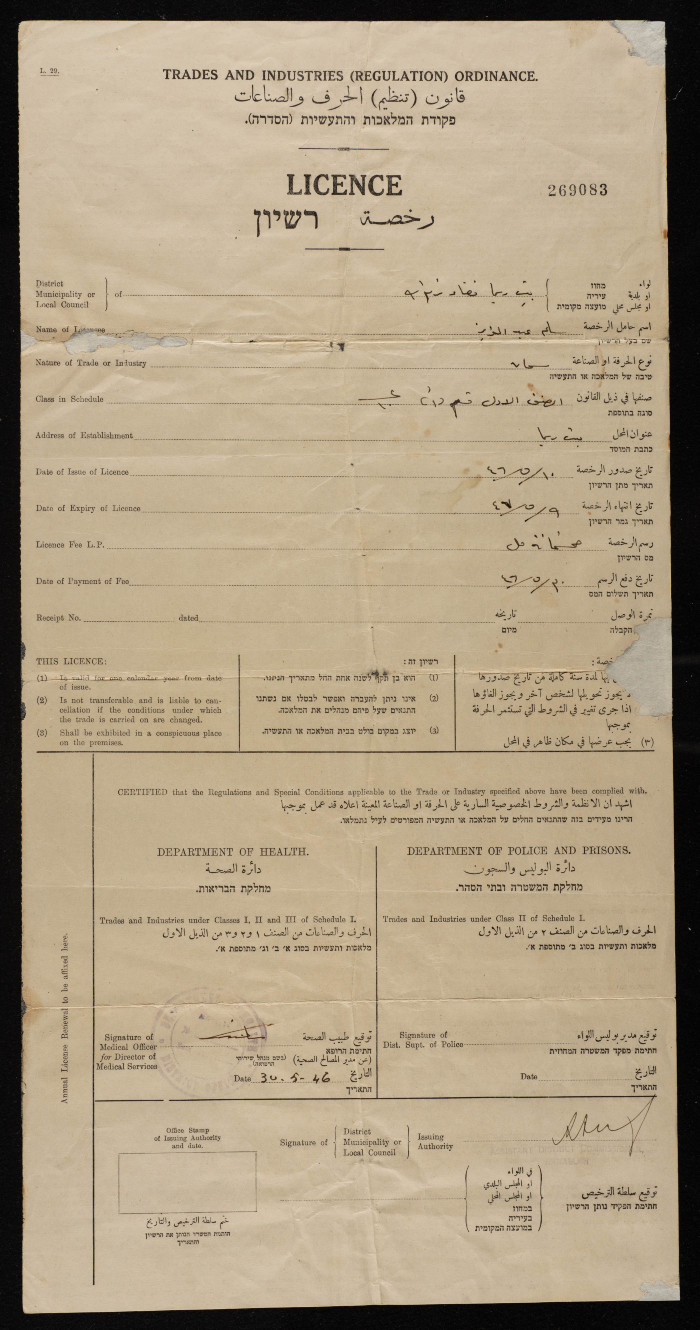 L. 29.
TRADES AND INDUSTRIES (REGULATION) ORDINANCE.
قانون (تنظيم) الحرف والصناعات
פקודת המלאכות והתעשיות (הסדרה).
LICENCE
269083
رخصة רשיון
District
Municipality or
Local Council
of
بيت ريما
לواء מחוז
او بلدية עיריה
او مجلس محلي מועצה מקומית
Name of Licensee
سالم عبد العزيز
اسم حامل الرخصة
שם בעל הרשיון
Nature of Trade or Industry
نوع الحرفة او الصناعة
טיבה של המלאכה או התעשיה
Class in Schedule
الصنف الاول قسم
صنفها في ذيل القانون
סוגה בתוספת
Address of Establishment
بيت ريما
عنوان المحل
כתבת המוסד
Date of Issue of Licence
٤٦/٥/١٠
تاريخ صدور الرخصة
תאריך מתן הרשיון
Date of Expiry of Licence
٤٧/٥/٩
تاريخ انتهاء الرخصة
תאריך גמר הרשיון
Licence Fee L.P.
رسم الرخصة
מס הרשיון
Date of Payment of Fee
٤٦/٥/٣٠
تاريخ دفع الرسم
תאריך תשלום המס
Receipt No. dated
تاريخه نمرة الوصل
מיום הקבלה
THIS LICENCE:
(1) Is valid for one calendar year from date
of issue.
(2) Is not transferable and is liable to can-
cellation if the conditions under which
the trade is carried on are changed.
(3) Shall be exhibited in a conspicuous place
on the premises.
רשיון זה:
(1) הוא בן תקף לשנה אחת החל מתאריך הנתינו.
(2) אינו ניתן להעברה ואפשר לבטלו אם נשתנו
התנאים שעל פיהם מנהלים את המלאכה.
(3) יוצג במקום בולט בבית המלאכה או התעשיה.
بها لمدة سنة كاملة من تاريخ صدورها
يجوز تحويلها لشخص آخر ويجوز الغاؤها
اذا جرى تغيير في الشروط التي تستمر الحرفة
بموجبها
(٣) يجب عرضها في مكان ظاهر في المحل
CERTIFIED that the Regulations and Special Conditions applicable to the Trade or Industry specified above have been complied with.
اشهد ان الانظمة والشروط الخصوصية السارية على الحرفة او الصناعة المعينة اعلاه قد عمل بموجبها
הרינו מעידים בזה שהתנאים החלים על המלאכה או התעשיה המפורטים לעיל נתמלאו.
DEPARTMENT OF HEALTH.
دائرة الصحة
מחלקת הבריאות.
Trades and Industries under Classes I, II and III of Schedule I.
الحرف والصناعات من الصنف ١ و٢ و٣ من الذيل الاول
מלאכות ותעשיות בסוג א' ב' וג' מתוספת א'.
Signature of
Medical Officer
for Director of
Medical Services
توقيع طبيب الصحة
חתימת הרופא
(عن مدير المصالح الصحية)
Date 30.5-46 التاريخ
התאריך
DEPARTMENT OF POLICE AND PRISONS.
دائرة البوليس والسجون
מחלקת המשטרה ובתי הסהר.
Trades and Industries under Class II of Schedule I.
الحرف والصناعات من الصنف ٢ من الذيل الاول
מלאכות ותעשיות בסוג ב' מתוספת א'.
Signature of
Dist. Supt. of Police
توقيع مدير بوليس اللواء
חתימת מפקד המשטרה המחוזית
Date التاريخ
התאריך
Annual Licence Renewal to be affixed here.
Office Stamp
of Issuing Authority
and date.
ختم سلطة الترخيص والتاريخ
Signature of
District
Municipality or
Local Council
Issuing
Authority
في اللواء
او المجلس البلدي
او المجلس المحلي
במחוז
בעיריה
במועצה המקומית
توقيع سلطة الترخيص
חתימת הפקיד נותן הרשיון